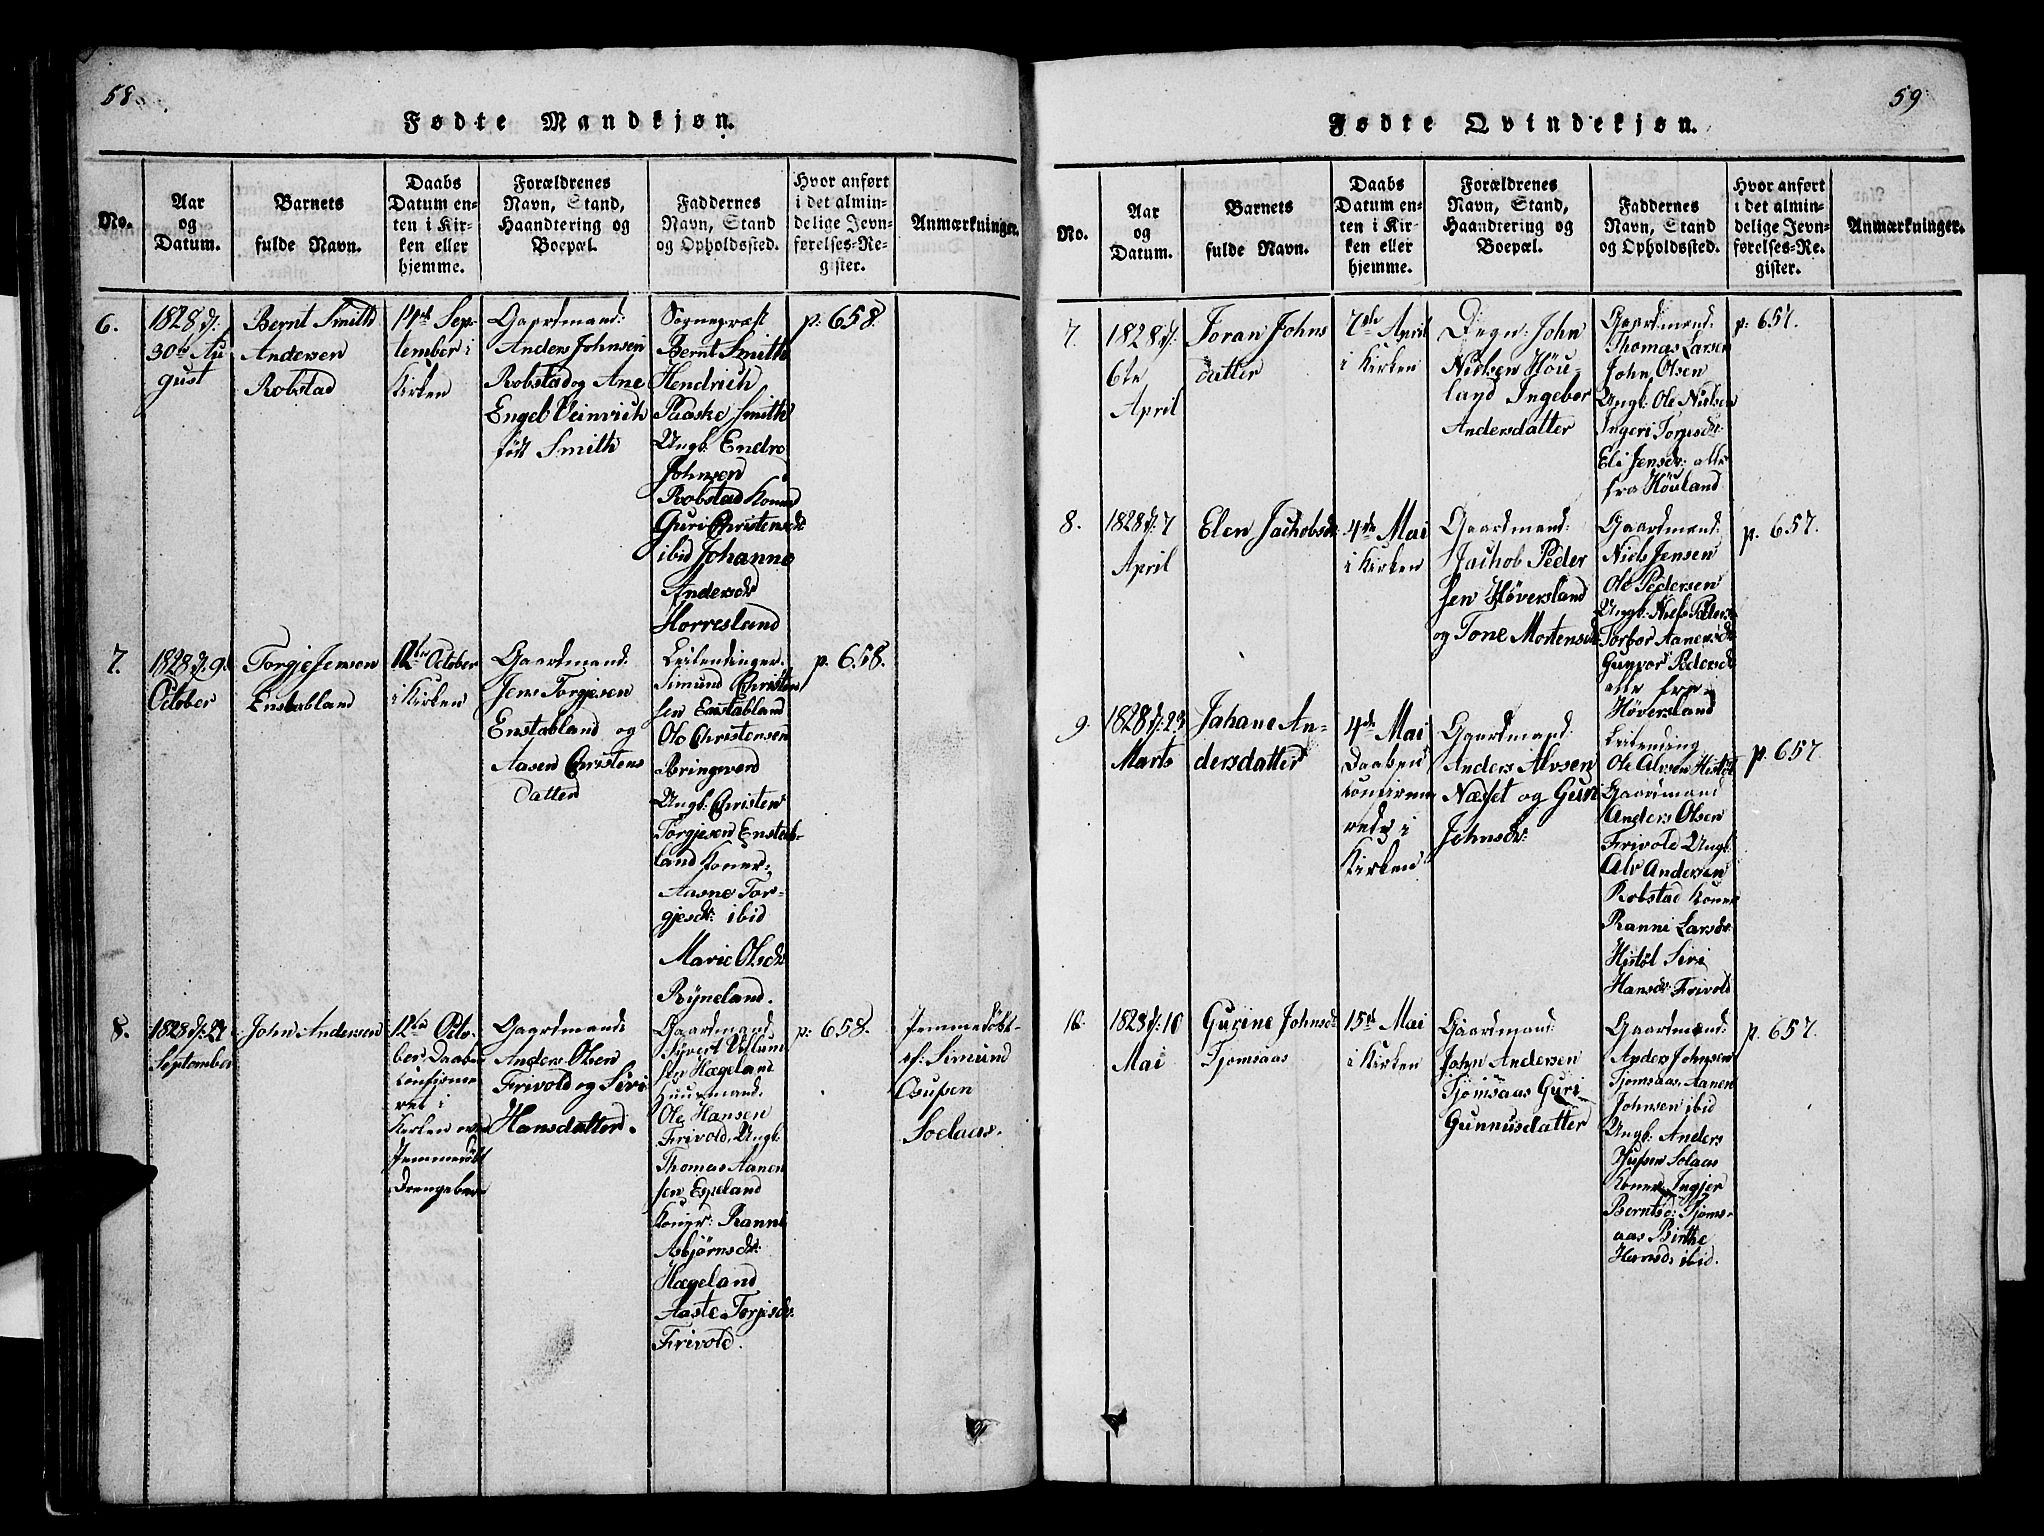 58
Fødte Mandkjøn.
No.
Aar
og
Datum.
Barnets
fulde Navn.
Daabs
Datum en-
ten i Kir-
ken eller
hjemme.
Forældrenes
Navn, Stand,
Haandtering og
Boepæl.
Faddernes
Navn, Stand
og Opholdssted.
Hvor anført
i det almin-
delige Jevn-
førelses-Re-
gister.
Anmærkninger.
6.
1828 d:
30te Au
gust
Bernt Smith
Andersen
Robstad
14de Sep-
tember i
Kirken
Gaardmand:
Anders Johnsen
Robstad og Ane
Engel Heinrich
født Smith
Sognepræst
Bernt Smith
Hendrich
Paaske Smith
Ungk: Endre
Johnsen
Robstad Koner
Guri Christensdr
ibid Johanne
Andersdr
Horresland
p: 658.
7.
1828 d: 9de
October
Torgje Jensen
Enstabland
12te October
i Kirken
Gaardmand:
Jens Torgjesen
Enstabland og
Aasen Christens
datter
Leilendinger.
Simund Christen
sen Enstabland
Ole Christensen
Abringword
Ungk: Christen
Torgjesen Enstab-
land Koner:
Aasne Tor-
gjesdr: ibid
Marie Olsdr
Ryneland.
p. 658.
8.
1828 d: 24
September
John Andersen
12te Octo-
ber, Daaben
confirme
ret i
Kirken over
Hjemmedøbt
Drengebarn
Gaardmand:
Anders Olsen
Frivold og Siri
Hansdatter.
Gaardmand
Syvert Villum
sen Hægeland
Huusmand:
Ole Hansen
Frivold, Ungk:
Thomas Aanen
sen Espeland
Koner: Ranni
Asbjørnsdr:
Hægeland
Aaste Torjesdr:
Frivold.
p: 658.
Hjemmedøbt
af: Simund
Osupen
Soelaas.
59
Fødte Qvindekjøn.
No.
Aar
og
Datum.
Barnets
fulde Navn.
Daabs
Datum en-
ten i Kir-
ken eller
hjemme.
Forældrenes
Navn, Stand,
Haandtering og
Boepæl.
Faddernes
Navn, Stand
og Opholdssted.
Hvor anført
i det almin-
delige Jevn-
førelses-Re-
gister.
Anmærkninger.
7.
1828 d:
6te
April
Joran Johns
datter
7de April
i Kirken
Degn: John
Nielsen Høu-
land Ingebor
Andersdatter
Gaardmand:
Thomas Larsen
John Olsen
Ungk: Ole Nielsen
Ingeri Torjesdr:
Eli Jensdr: alle
fra Høuland
p: 657.
8.
1828 d: 7
April
Elen Jachobsdr:
4de Mai
i Kirken
Gaardmand:
Jachob Peder
sen Høversland
og Tone Mortensdr
Gaardmand:
Niels Jensen
Ole Pedersen
Ungk: Niels Peders
Torbor Aanensdr
Gunvor Pedersdr
alle fra
Høversland
p. 657.
9.
1828 d: 23
Marts
Jahane An-
dersdatter
4de Mai
Daaben
confirme
rede i
Kirken
Gaardmand:
Anders Alvsen
Næsset og Gun
Johnsdr:
Leilending
Ole Alvsen Histøl
Gaardmand
Anders Olsen
Frivold Ungk:
Alv Andersen
Robstad Koner
Ranni Larsdr
Histøl Siri
Hansdr: Frivold
p. 657.
10.
1828 d: 10
Mai
Gurine Johnsdr
Tjomsaas
15de Mai
i Kirken
Gaardmand:
John Andersen
Tjomsaas Guri
Gunnusdatter
Gaardmand:
Anders Johnsen
Tjomsaas, Aanen
Johnsen ibid
Ungk: Anders
Solaas
Koner Ingjer
Berntsd: Tjoms-
aas Birthe
Hansd: ibid.
p. 657.